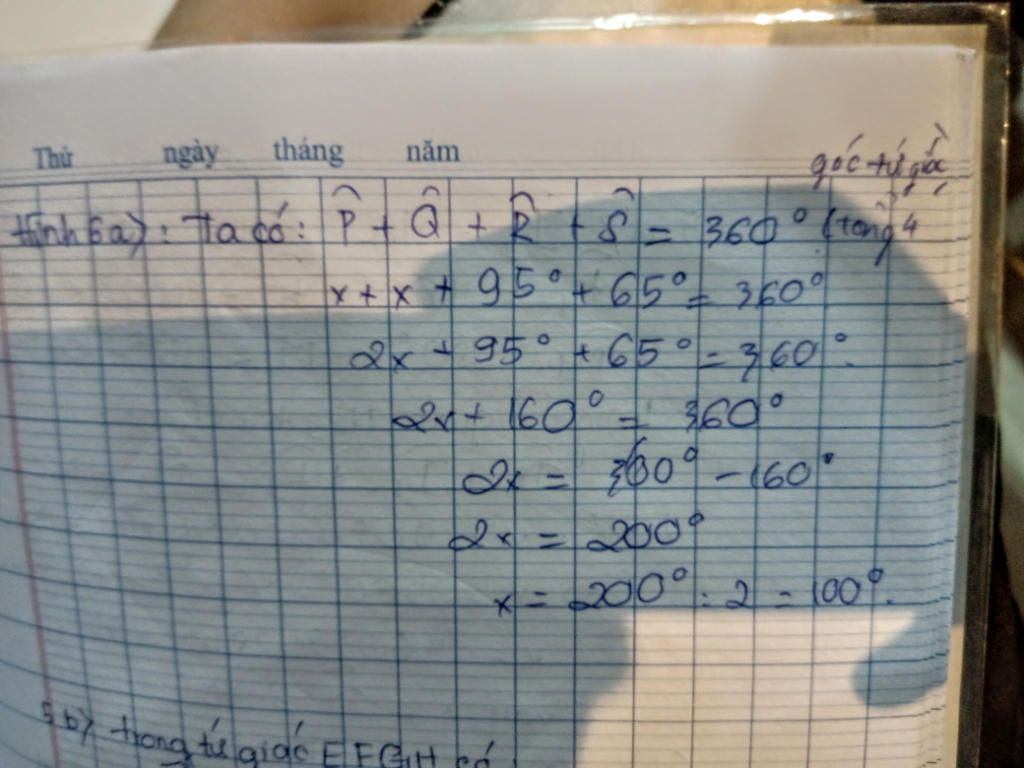 Thứ ngày tháng năm
góc tứ giác
Hình 6a): Ta có: P̂ + Q̂ + R̂ + Ŝ = 360° (tổng 4
x + x + 95° + 65° = 360°
2x + 95° + 65° = 360°.
2x + 160° = 360°
2x = 360° - 160°
2x = 200°
x = 200° : 2 = 100°.
5b) trong tứ giác EFGH có